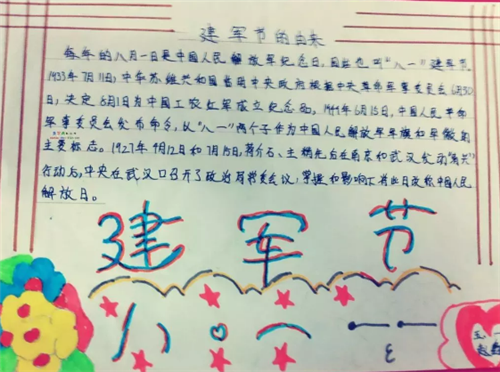 建军节的由来
每年的八月一日是中国人民解放军纪念日,因此也叫"八一"建军节
1933年7月11日,中华苏维共和国临时中央政府根据中央革命军事委员会6月30
日,决定8月1日为中国工农红军成立纪念日。1949年6月15日,中国人民革命
军事委员会发布命令,以"八一"两个字作为中国人民解放军军旗和军徽的
主要标志。1927年4月12日和7月15日,蒋介石、汪精卫先后在南京和武汉发动
行动后,中央在武汉口召开了政治局常委会议,掌握和影响下将此日改称中国人民
解放日。
建军节
八 一